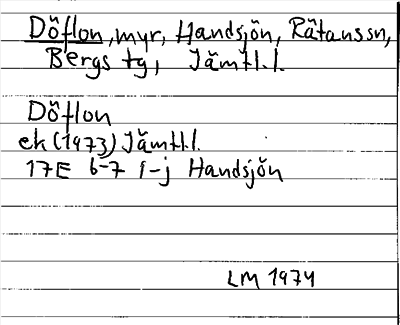 Döflon, myr, Handsjön, Rätanssn,
Bergs tg, Jämtl.l.
Döflon
ek (1973) Jämtl.l.
17E 6-7 i-j Handsjön
LM 1974